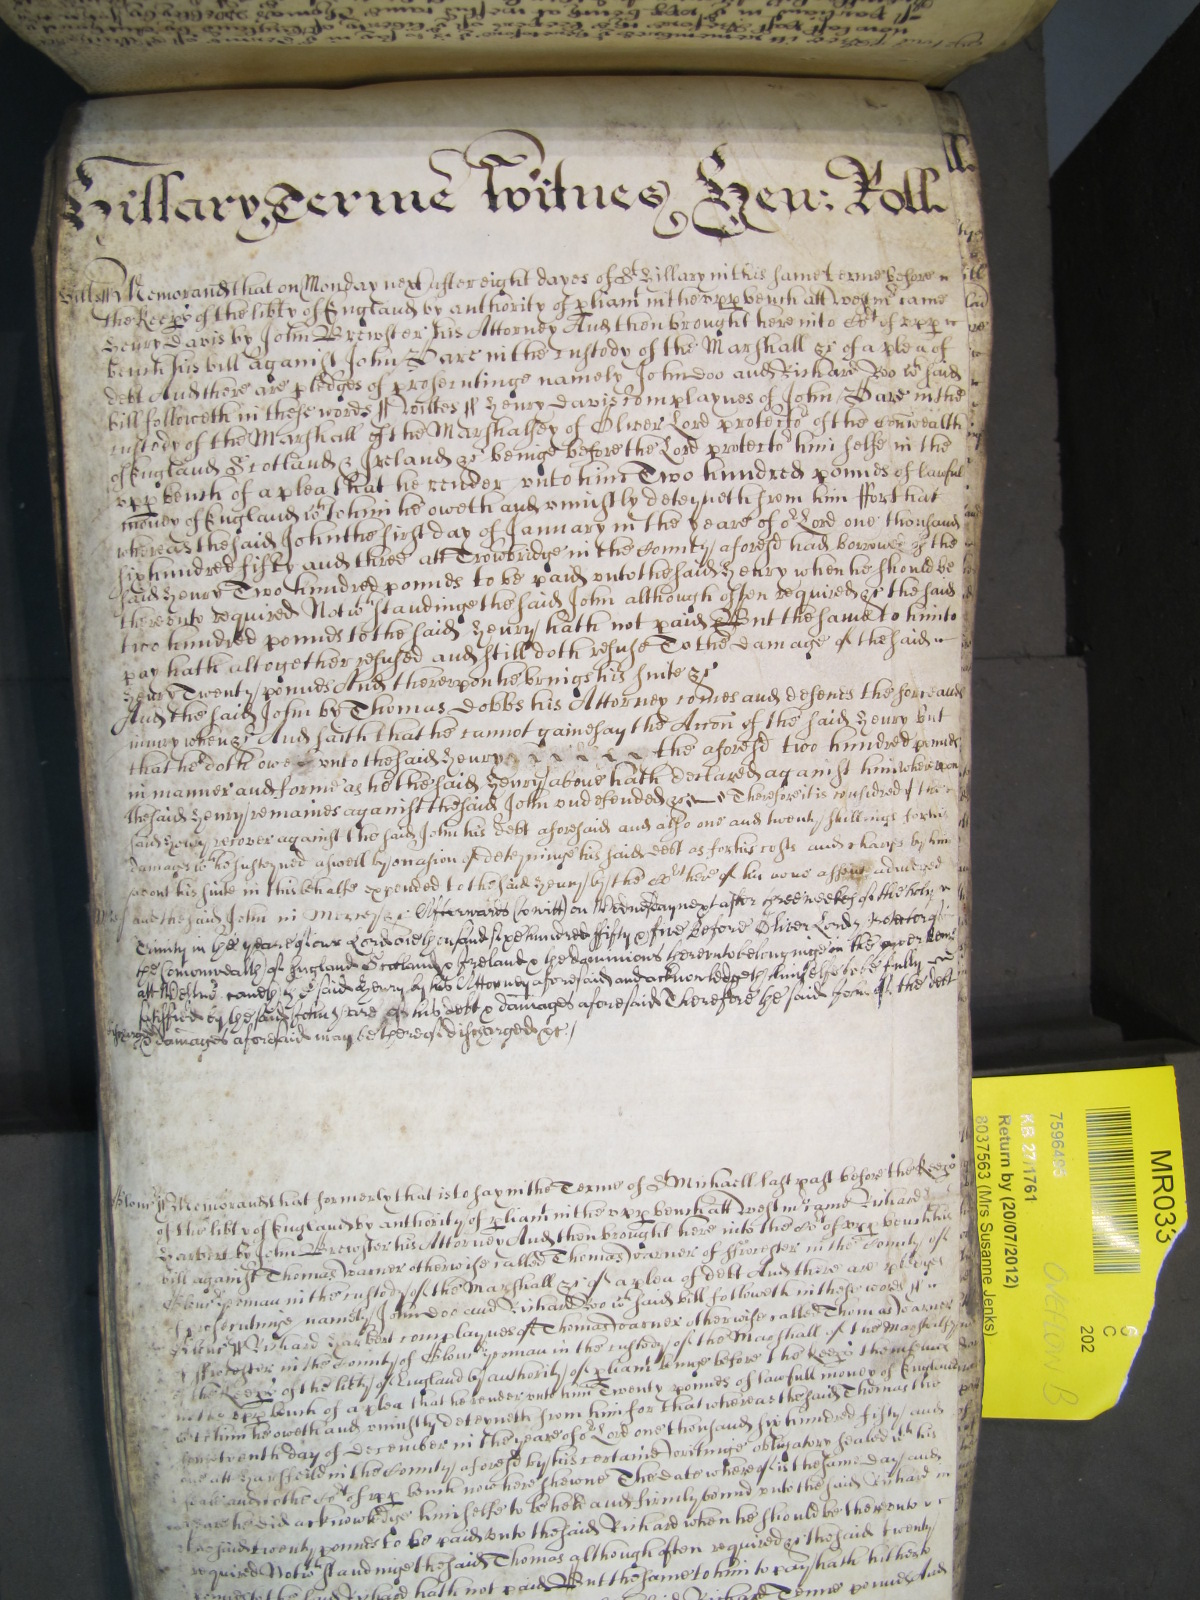 Hillary Terme Witnes Hen: Roll
Wiltes ss Memorand that on Monday next after eight dayes of St Hillary in this same terme before
the Keeps of the libty of England by authority of pliamt in the vpp bench att Westmr came
Henry Davis by John Brewster his Attorney And then brought here into Cort of vpp
bench his bill against John Dare in the custody of the Marshall &c of a plea of
debt And there are pledges of prosecutinge namely John Doo and Richard Roo wch said
bill followeth in these words ss Wiltes ss Henry Davis complaynes of John Dare in the
custody of the Marshall of the Marshalsey of Oliver Lord protector of the Comwealth
of England Scotland & Ireland &c beinge before the Lord protector him selfe in the
vpp bench of a plea that he render unto him Two hundred pounds of lawful
money of England wch to him he oweth and uniustly deteyneth from him ffor that
whereas the said John the first day of January in the yeare of or Lord one thousand
six hundred fifty and three att Trowbridge in the County aforesd had borrowed of the
said Henry Two hundred pounds to be paid unto the said Henry when he should be
thereunto required Notwthstandinge the said John although often required &c the said
two hundred pounds to the said Henry hath not paid But the same to him to
pay hath altogether refused and still doth refuse To the damage of the said
Henry Twenty pounds And thereupon he brings his suite &c
And the said John by Thomas Dobbs his Attorney comes and defends the force and
iniury when &c And saith that he cannot gainesay the Accon of the said Henry but
that he doth owe unto the said Henry the aforesd two hundred pounds
in manner and forme as he the said Henry above hath declared against him whereupon
the said Henry remaines against the said John undefended &c Therefore it is considred that
said Henry recover against the said John his debt aforesaid and also one and twenty shillings for his
damages wch he susteyned aswell by occasion of deteyninge his said debt as for his costs and charges by him
about his suite in this behalfe expended to the said Henry by the Cort here of his owne assent adiudged
and the said John in Mercy &c Afterwards (to witt) on Wednesday next after three weekes of the holy
Trinity in the yeare of our Lord one thousand six hundred ffifty & five before Oliver Lord Protector of
the Comonwealth of England Scotland & Ireland & the dominions thereunto belonginge in the upper bench
att Westmr cometh the said Henry by his Attorney aforesaid and acknowledgeth himselfe to be fully
satisfied by the said John Dare of his debt & damages aforesaid Therefore the said John of the debt
& damages aforesaid may be thereof discharged &c
Glouc ss Memorand that formerly that is to say in the Terme of St Michaell last past before the Keeps
of the libty of England by authority of pliamt in the vpp bench att Westmr came Richard
Harbert by John Brewster his Attorney And then brought here into the Cort of vpp bench his
bill against Thomas Warner otherwise called Thomas Warner of ffrocester in the County of
Glouc yeoman in the custody of the Marshall &c of a plea of debt And there are pledges
of prosecutinge namely John Doo and Richard Roo wch said bill followeth in these words ss
Glouc ss Richard Harbert complaynes of Thomas Warner otherwise called Thomas Warner
of ffrocester in the County of Glouc yeoman in the custody of the Marshall of the Marshalsey
the Keeps of the libty of England by authority of pliamt beinge before the Keeps themselves
in the vpp bench of a plea that he render unto him Twenty pounds of lawfull money of England
wch to him he oweth and uniustly deteyneth from him for that whereas the said Thomas the
day of December in the yeare of or Lord one thousand six hundred fifty and
one att Harsfeild in the County aforesd by his certaine writinge obligatory sealed wth his
seale and to the Cort of vpp bench now here shewne The date whereof is the same day and
yeare he did acknowledge himselfe to be held and firmly bound unto the said Richard in
the said twenty pounds to be paid unto the said Richard when he should be thereunto
required Notwthstandinge the said Thomas although often required &c the said twenty
pounds to the said Richard hath not paid But the same to him to pay hath hitherto
said Richard Tenne pounds And
MR033
202
C
7596495
KB 27/1761
Return by (20/07/2012)
8037563 (Mrs Susanne Jenks)